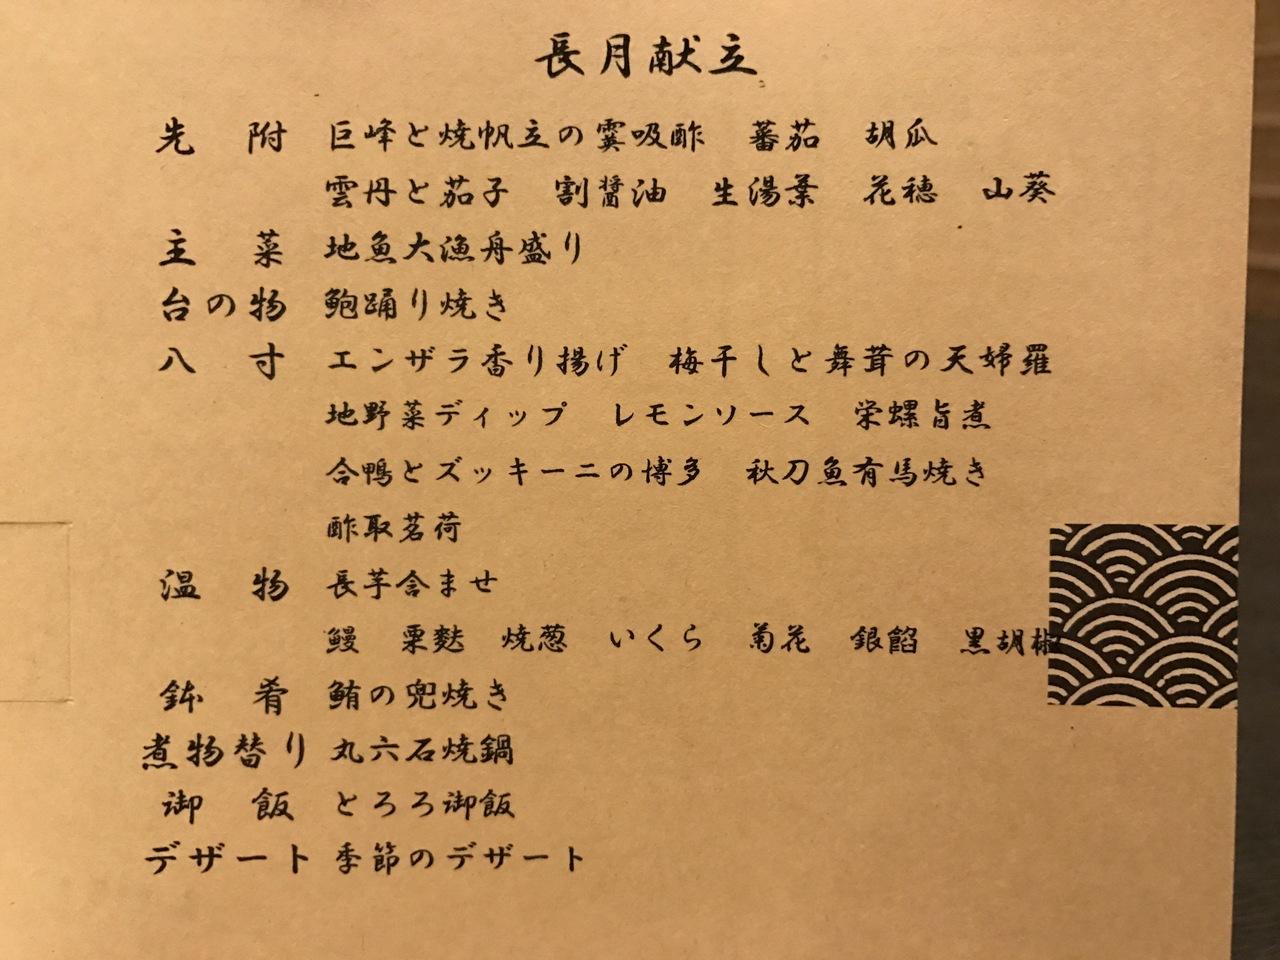 長月献立
先附 巨峰と焼帆立の霙吸酢 蕃茄 胡瓜
雲丹と茄子 割醤油 生湯葉 花穂 山葵
主菜 地魚大漁舟盛り
台の物 鮑踊り焼き
八寸 エンザラ香り揚げ 梅干しと舞茸の天婦羅
地野菜ディップ レモンソース 栄螺旨煮
合鴨とズッキーニの博多 秋刀魚有馬焼き
酢取茗荷
温物 長芋含ませ
鰻 粟麩 焼葱 いくら 菊花 銀餡 黒胡椒
鉢肴 鮪の兜焼き
煮物替り 丸六石焼鍋
御飯 とろろ御飯
デザート 季節のデザート